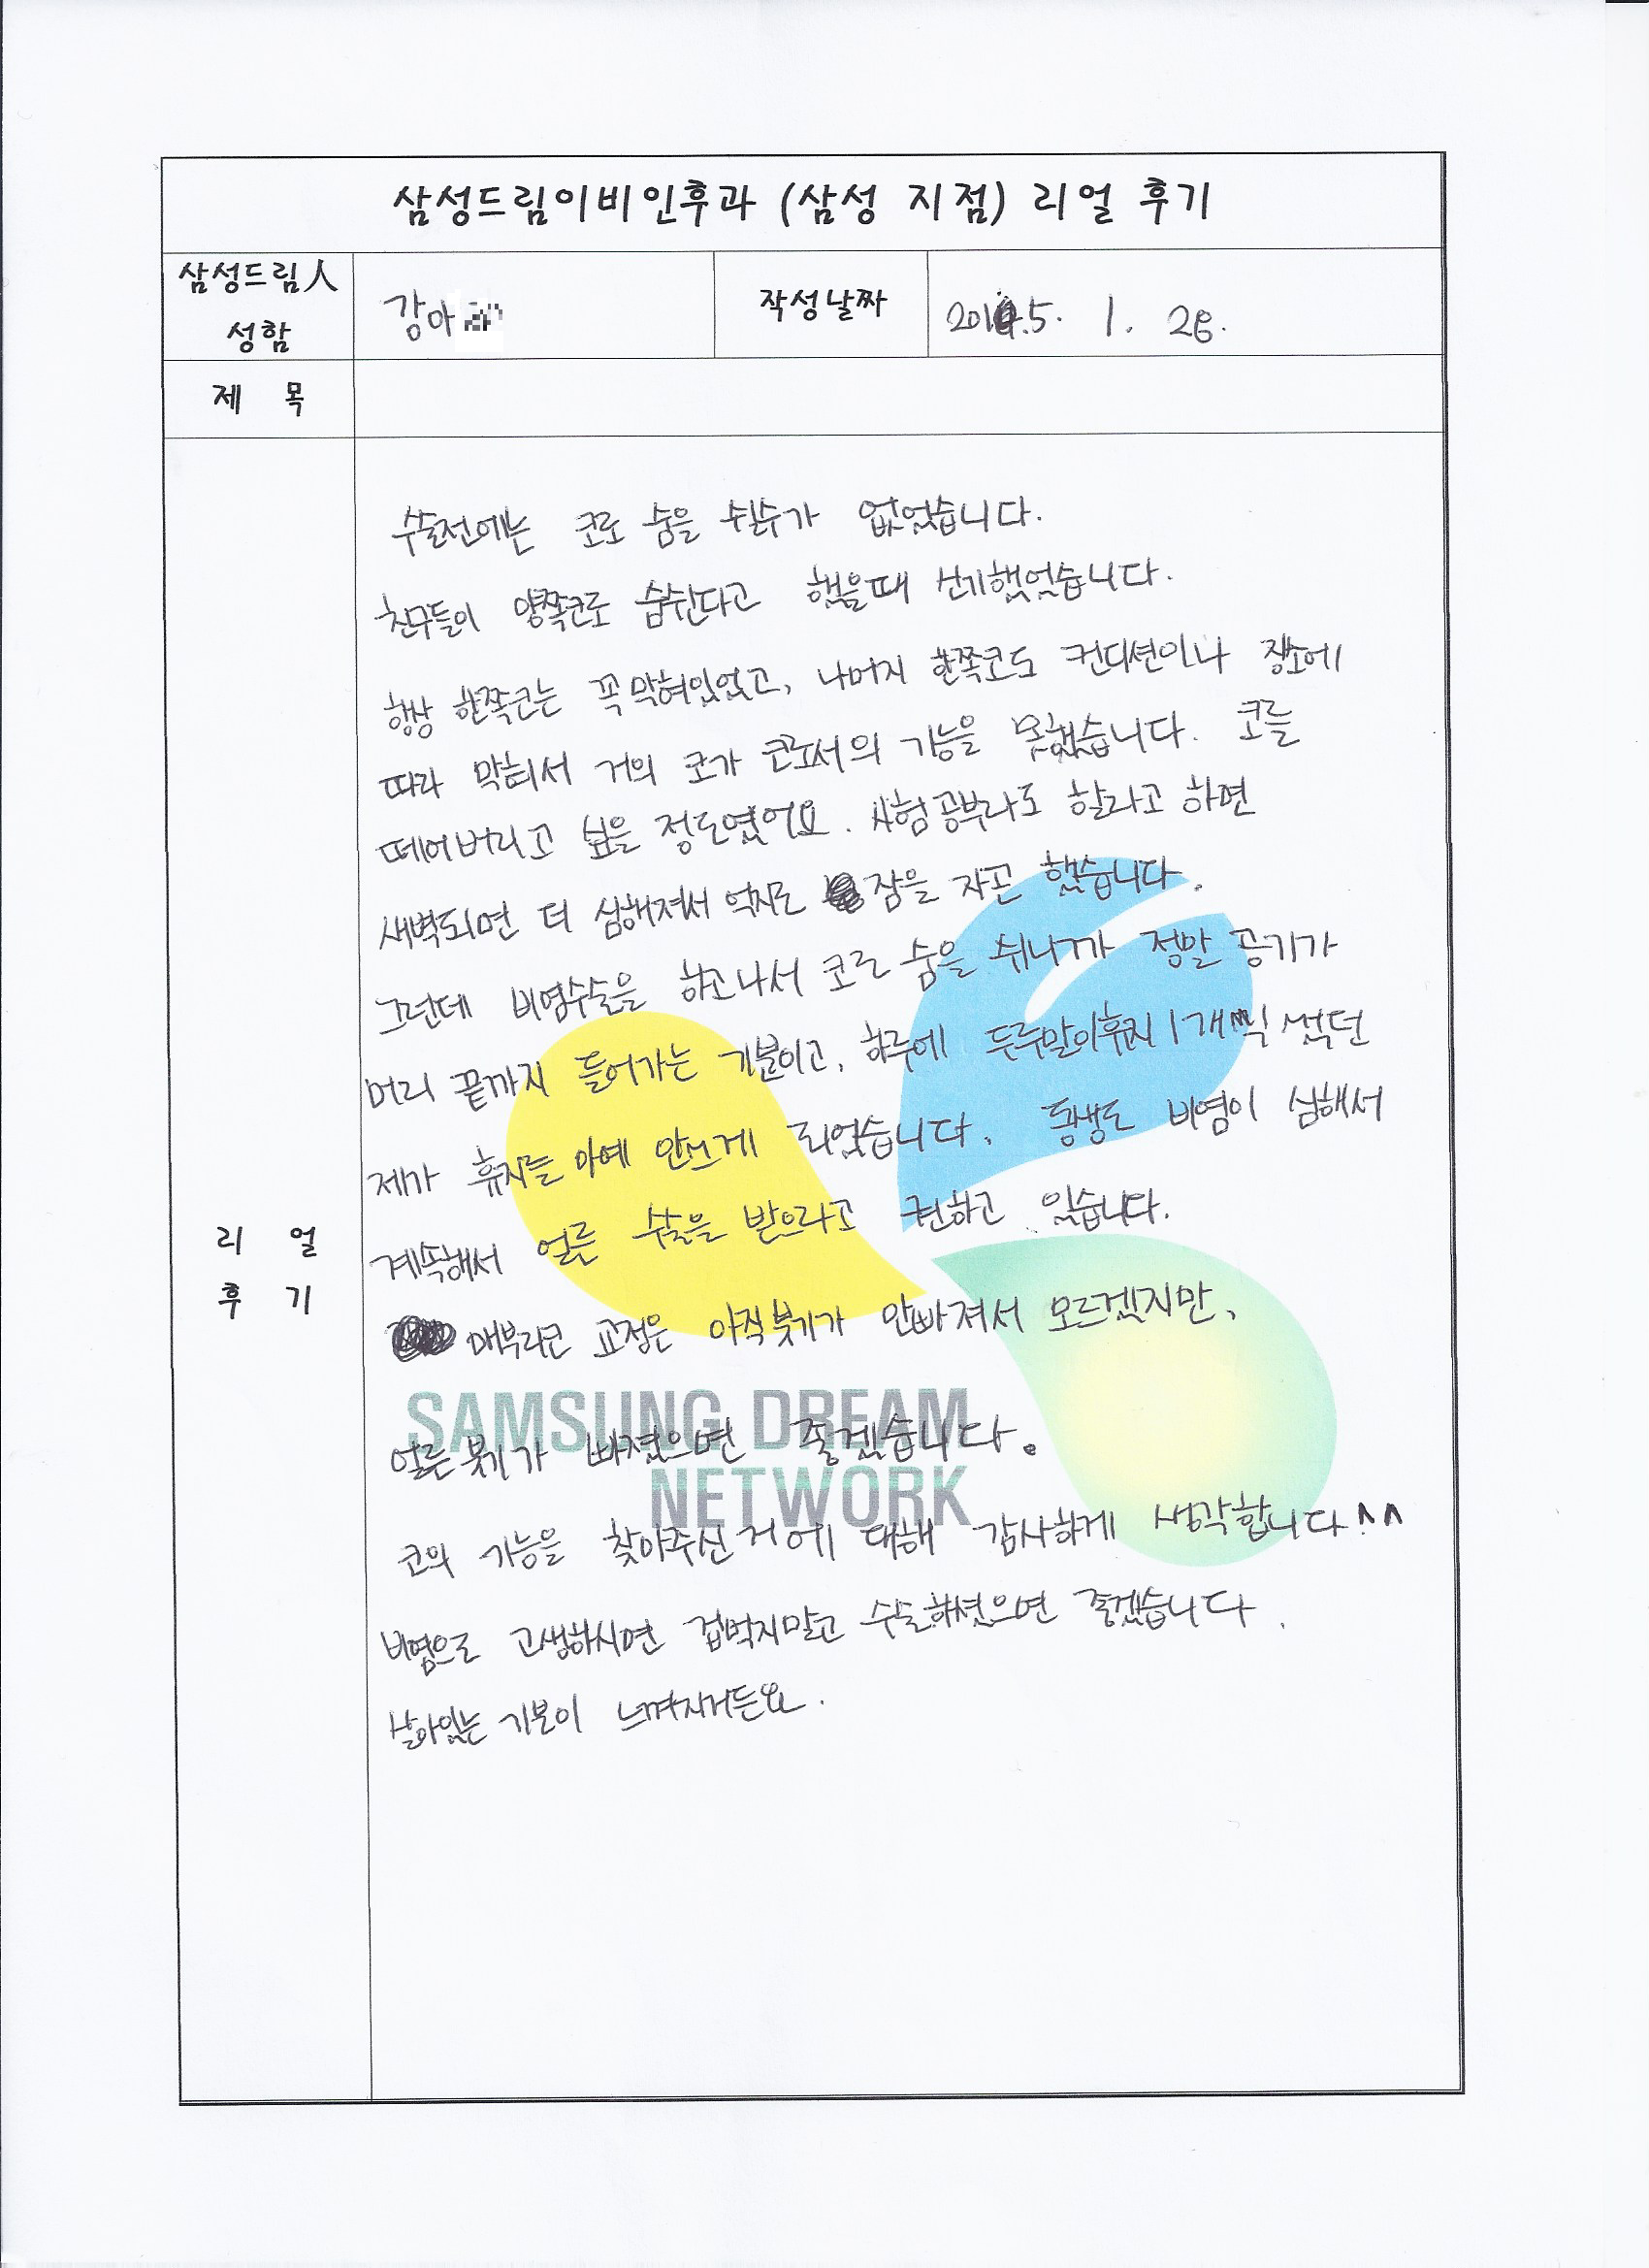 삼성드림이비인후과 (삼성 지점) 리얼 후기
삼성드림人
성함
강아
작성날짜
2015. 1. 26.
제 목
수술전에는 코로 숨을 쉴수가 없었습니다.
친구들이 양쪽코로 숨쉰다고 했을때 신기했었습니다.
항상 한쪽코는 꼭 막혀있었고, 나머지 한쪽코도 컨디션이나 장소에
따라 막혀서 거의 코가 코로서의 기능을 못했습니다. 코를
떼어버리고 싶을 정도였어요. 시험공부라도 할라고 하면
새벽되면 더 심해져서 억지로 잠을 자곤 했습니다.
그런데 비염수술을 하고나서 코로 숨을 쉬니까 정말 공기가
머리 끝까지 들어가는 기분이고, 하루에 두루말이휴지 1개씩 썼던
제가 휴지를 아예 안쓰게 되었습니다. 동생도 비염이 심해서
계속해서 얼른 수술을 받으라고 권하고 있습니다.
매부리코 교정은 아직 붓기가 안빠져서 모르겠지만,
얼른 붓기가 빠졌으면 좋겠습니다.
코의 기능을 찾아주신거에 대해 감사하게 생각합니다 ^^
비염으로 고생하시면 겁먹지말고 수술하셨으면 좋겠습니다.
살아있는 기분이 느껴지거든요.
리 얼
후 기
SAMSUNG DREAM
NETWORK